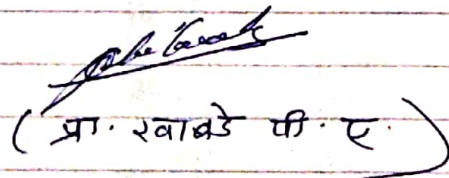 ( प्रा. खाबडे पी. ए. )